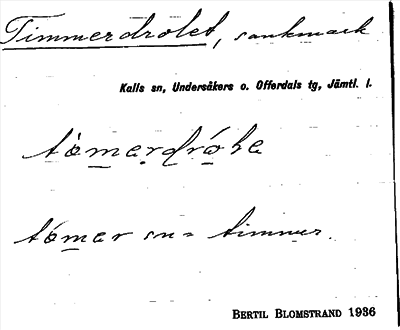 Timmerdrolet, sankmark
Kalls sn, Undersåkers o. Offerdals tg, Jämtl. l.
tòmerdróḷa
tómer sn = timmer.
BERTIL BLOMSTRAND 1936